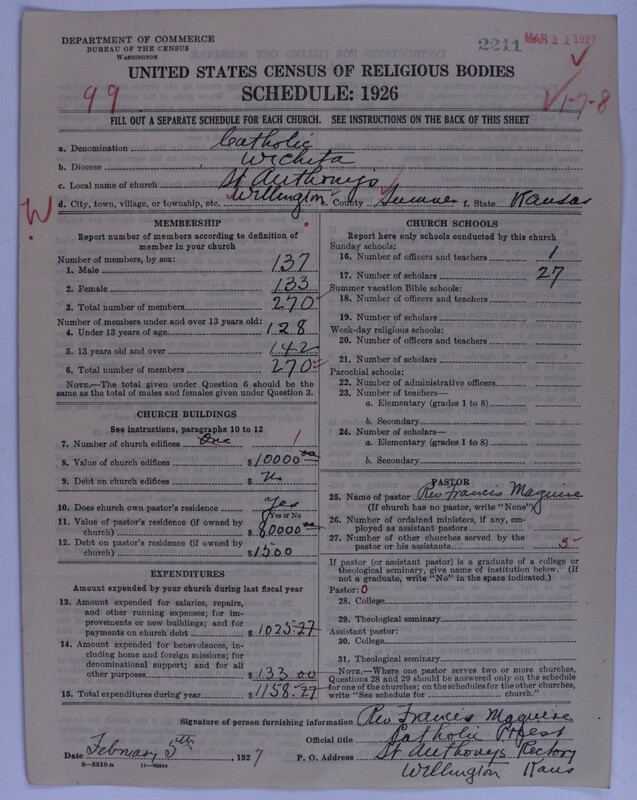 DEPARTMENT OF COMMERCE
BUREAU OF THE CENSUS
WASHINGTON
2211
MAR 11 1927
UNITED STATES CENSUS OF RELIGIOUS BODIES
SCHEDULE: 1926
99
1-7-8
FILL OUT A SEPARATE SCHEDULE FOR EACH CHURCH. SEE INSTRUCTIONS ON THE BACK OF THIS SHEET
a. Denomination Catholic
b. Diocese Wichita
c. Local name of church St Anthony's
d. City, town, village, or township, etc. Wellington e. County Sumner f. State Kansas
W
MEMBERSHIP
Report number of members according to definition of member in your church
Number of members, by sex:
1. Male 137
2. Female 133
3. Total number of members 270
Number of members under and over 13 years old:
4. Under 13 years of age 128
5. 13 years old and over 142
6. Total number of members 270
NOTE.—The total given under Question 6 should be the same as the total of males and females given under Question 3.
CHURCH BUILDINGS
See instructions, paragraphs 10 to 12
7. Number of church edifices One 1
8. Value of church edifices $ 10000 00
9. Debt on church edifices $
10. Does church own pastor's residence Yes
(Yes or No)
11. Value of pastor's residence (if owned by church) $ 80000
12. Debt on pastor's residence (if owned by church) $ 1500
EXPENDITURES
Amount expended by your church during last fiscal year
13. Amount expended for salaries, repairs, and other running expenses; for improvements or new buildings; and for payments on church debt $ 1025.27
14. Amount expended for benevolences, including home and foreign missions; for denominational support; and for all other purposes $ 133 00
15. Total expenditures during year $ 1158.27
CHURCH SCHOOLS
Report here only schools conducted by this church
Sunday schools:
16. Number of officers and teachers 1
17. Number of scholars 27
Summer vacation Bible schools:
18. Number of officers and teachers
19. Number of scholars
Week-day religious schools:
20. Number of officers and teachers
21. Number of scholars
Parochial schools:
22. Number of administrative officers
23. Number of teachers—
a. Elementary (grades 1 to 8)
b. Secondary
24. Number of scholars—
a. Elementary (grades 1 to 8)
b. Secondary
PASTOR
25. Name of pastor Rev Francis Maguire
(If church has no pastor, write "None")
26. Number of ordained ministers, if any, employed as assistant pastors
27. Number of other churches served by the pastor or his assistants 3
If pastor (or assistant pastor) is a graduate of a college or theological seminary, give name of institution below. (If not a graduate, write "No" in the space indicated.)
Pastor: 0
28. College
29. Theological seminary
Assistant pastor:
30. College
31. Theological seminary
NOTE.—Where one pastor serves two or more churches, Questions 28 and 29 should be answered only on the schedule for one of the churches; on the schedules for the other churches, write "See schedule for ............ church."
Signature of person furnishing information Rev Francis Maguire
Official title Catholic Priest
Date February 5th, 1927 P. O. Address St Anthonys Rectory
Wellington Kans